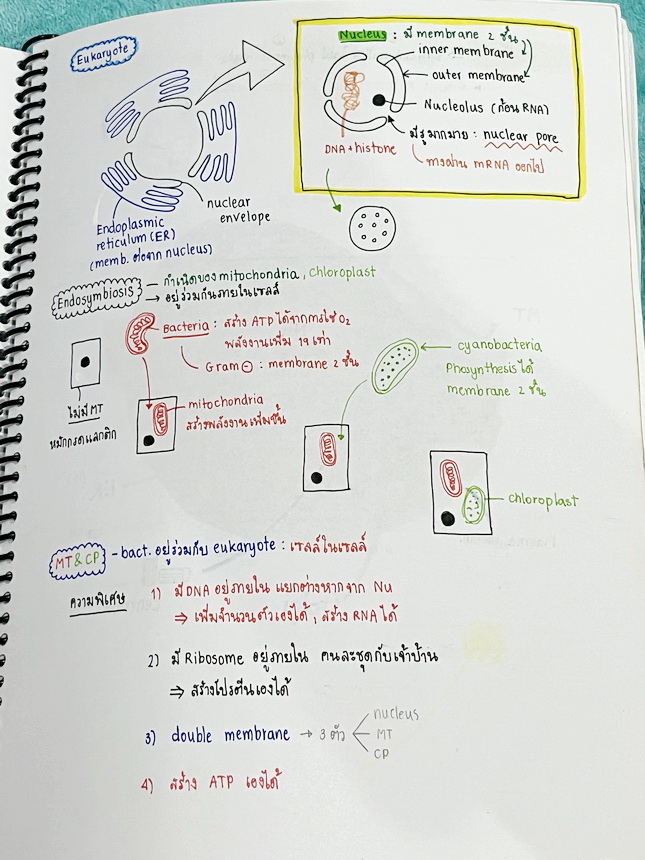 Eukaryote
Nucleus : มี membrane 2 ชั้น
inner membrane
outer membrane
Nucleolus (ก้อน RNA)
มีรูมากมาย : nuclear pore
ทางผ่าน mRNA ออกไป
DNA + histone
nuclear
envelope
Endoplasmic
reticulum (ER)
(memb. ต่อจาก nucleus)
Endosymbiosis
→ กำเนิดของ mitochondria, chloroplast
→ อยู่ร่วมกันภายในเซลล์
Bacteria : สร้าง ATP ได้จากการใช้ O₂
พลังงานเพิ่ม 19 เท่า
Gram ⊖ : membrane 2 ชั้น
cyanobacteria
Phosynthesis ได้
membrane 2 ชั้น
ไม่มี MT
หมักกรดแลกติก
mitochondria
สร้างพลังงานเพิ่มขึ้น
chloroplast
MT & CP - bact. อยู่ร่วมกับ eukaryote : เซลล์ในเซลล์
ความพิเศษ
1) มี DNA อยู่ภายใน แยกต่างหากจาก Nu
⇒ เพิ่มจำนวนตัวเองได้, สร้าง RNA ได้
2) มี Ribosome อยู่ภายใน คนละชุดกับเจ้าบ้าน
⇒ สร้างโปรตีนเองได้
3) double membrane → 3 ตัว
nucleus
MT
CP
4) สร้าง ATP เองได้